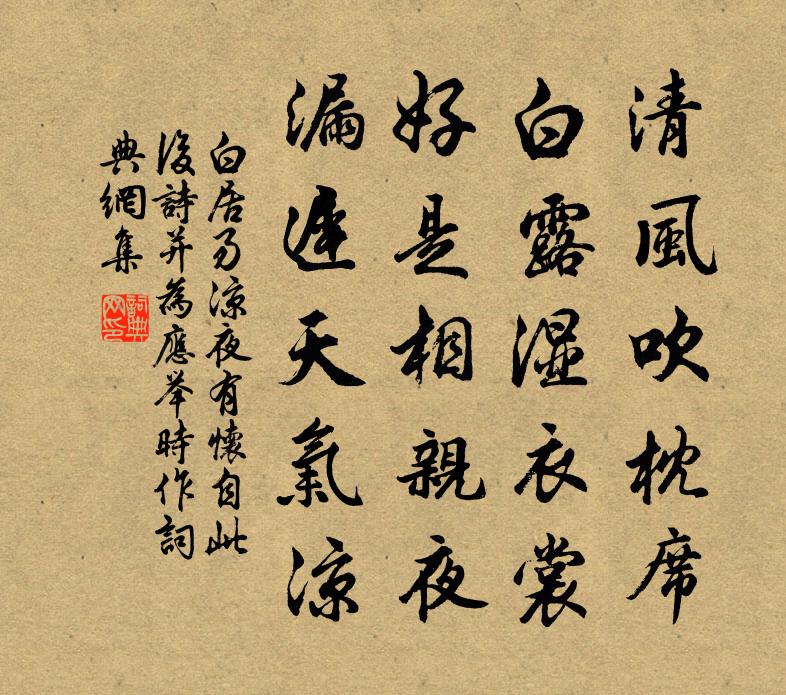 清風吹枕席
白露湿衣裳
好是相親夜
漏遲天氣涼
白居易涼夜有懷自此
後詩并為應举時作詞
典網集
詞典网印